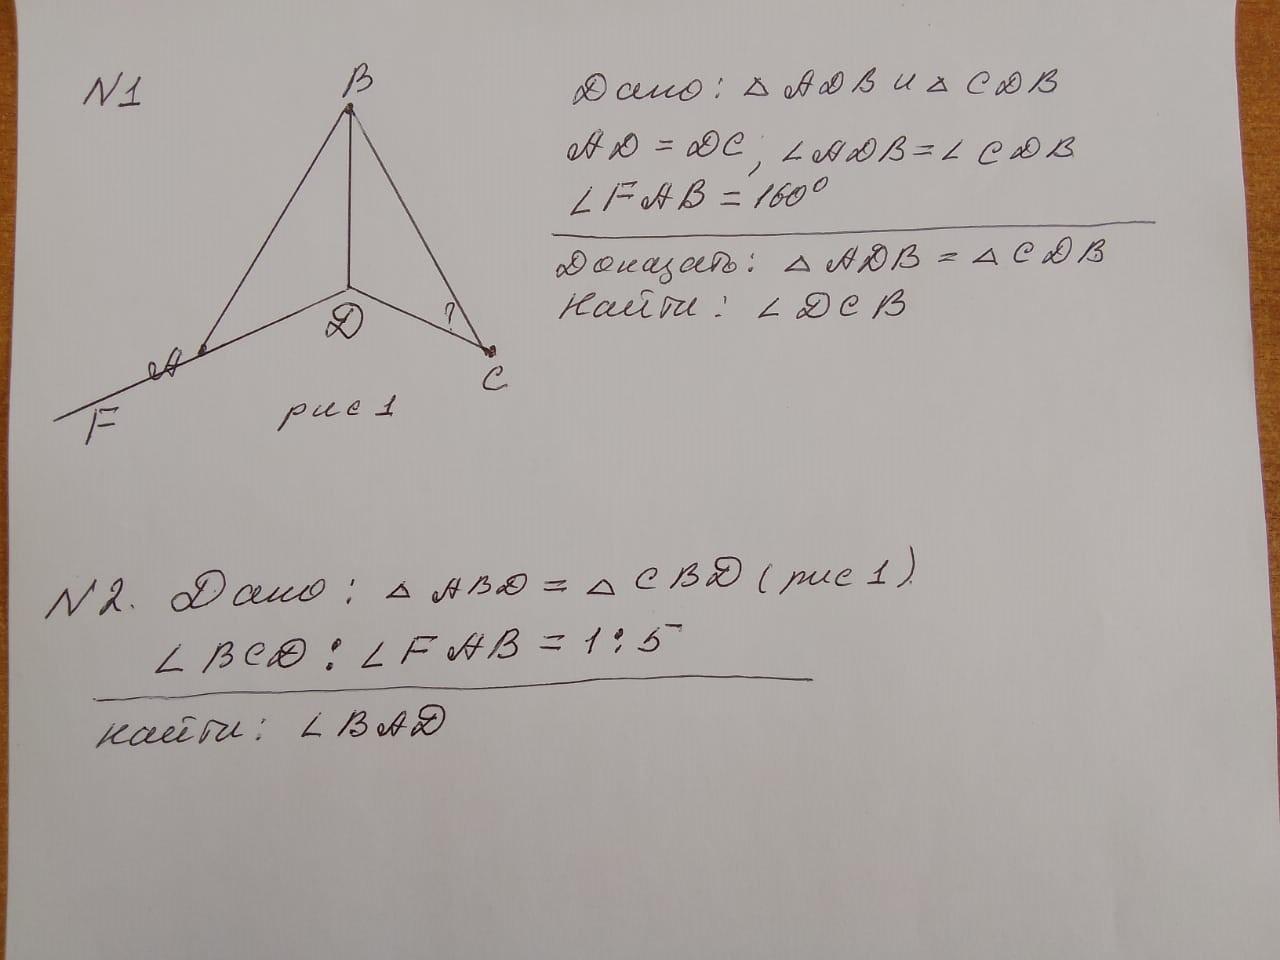 N1
B
A
D
?
C
F
рис 1
Дано: △ ADB и △ CDB
AD = DC, ∠ADB = ∠CDB
∠FAB = 160°
Доказать: △ ADB = △ CDB
Найти: ∠ DCB
N2. Дано: △ ABD = △ CBD (рис 1).
∠BCD : ∠FAB = 1:5
Найти: ∠BAD